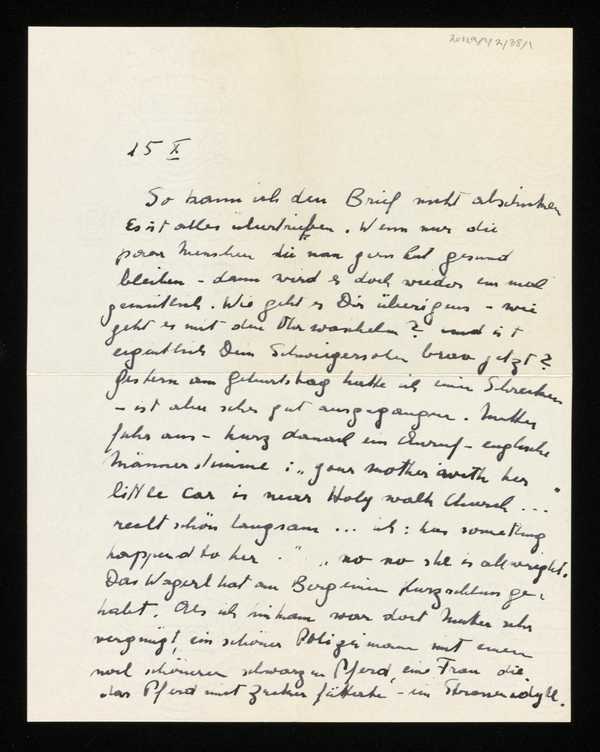 15 X
So kann ich den Brief nicht abschicken
Es ist alles übertrieben. Wenn nur die
paar Menschen die man gern hat gesund
bleiben - dann wird es doch wieder ein mal
gemütlich. Wie geht es Dir übrigens - wie
geht es mit dem Ohrwaschln? und ist
eigentlich Dein Schwiegersohn brav jetzt?
Gestern am Geburtstag hatte ich einen Schrecken
- ist aber sehr gut ausgegangen. Mutter
fuhr aus - kurz danach ein Anruf - englische
Männerstimme: „your mother with her
little car is near Holy walk Church ..."
recht schön langsam ... ich: has something
happend to her." „no no she is allwright.
Das Wagerl hat am Berg einen Kurzschluss ge-
habt. Als ich hinkam war dort Mutter sehr
vergnügt, ein schöner Polizeimann mit einem
noch schöneren schwarzen Pferd, eine Frau die
das Pferd mit Zucker fütterte - ein Strassenidyll.